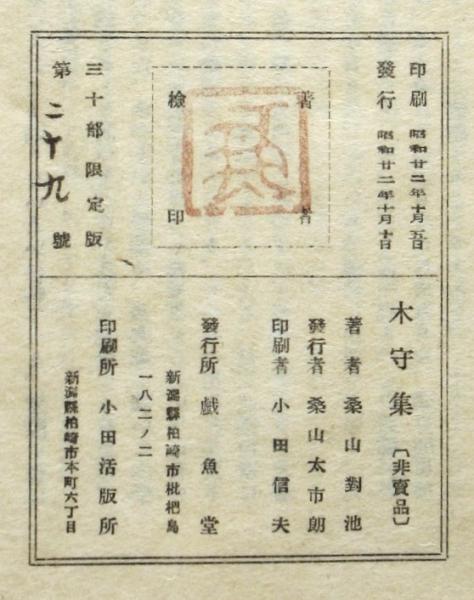 印刷 昭和廿二年十月五日
發行 昭和廿二年十月十日
著者
檢印
三十部限定版
第二十九號
木守集 〔非賣品〕
著者 桑山對池
發行者 桑山太市朗
印刷者 小田信夫
發行所 戲魚堂
新潟縣柏崎市枇杷島
一八二ノ二
印刷所 小田活版所
新潟縣柏崎市本町六丁目